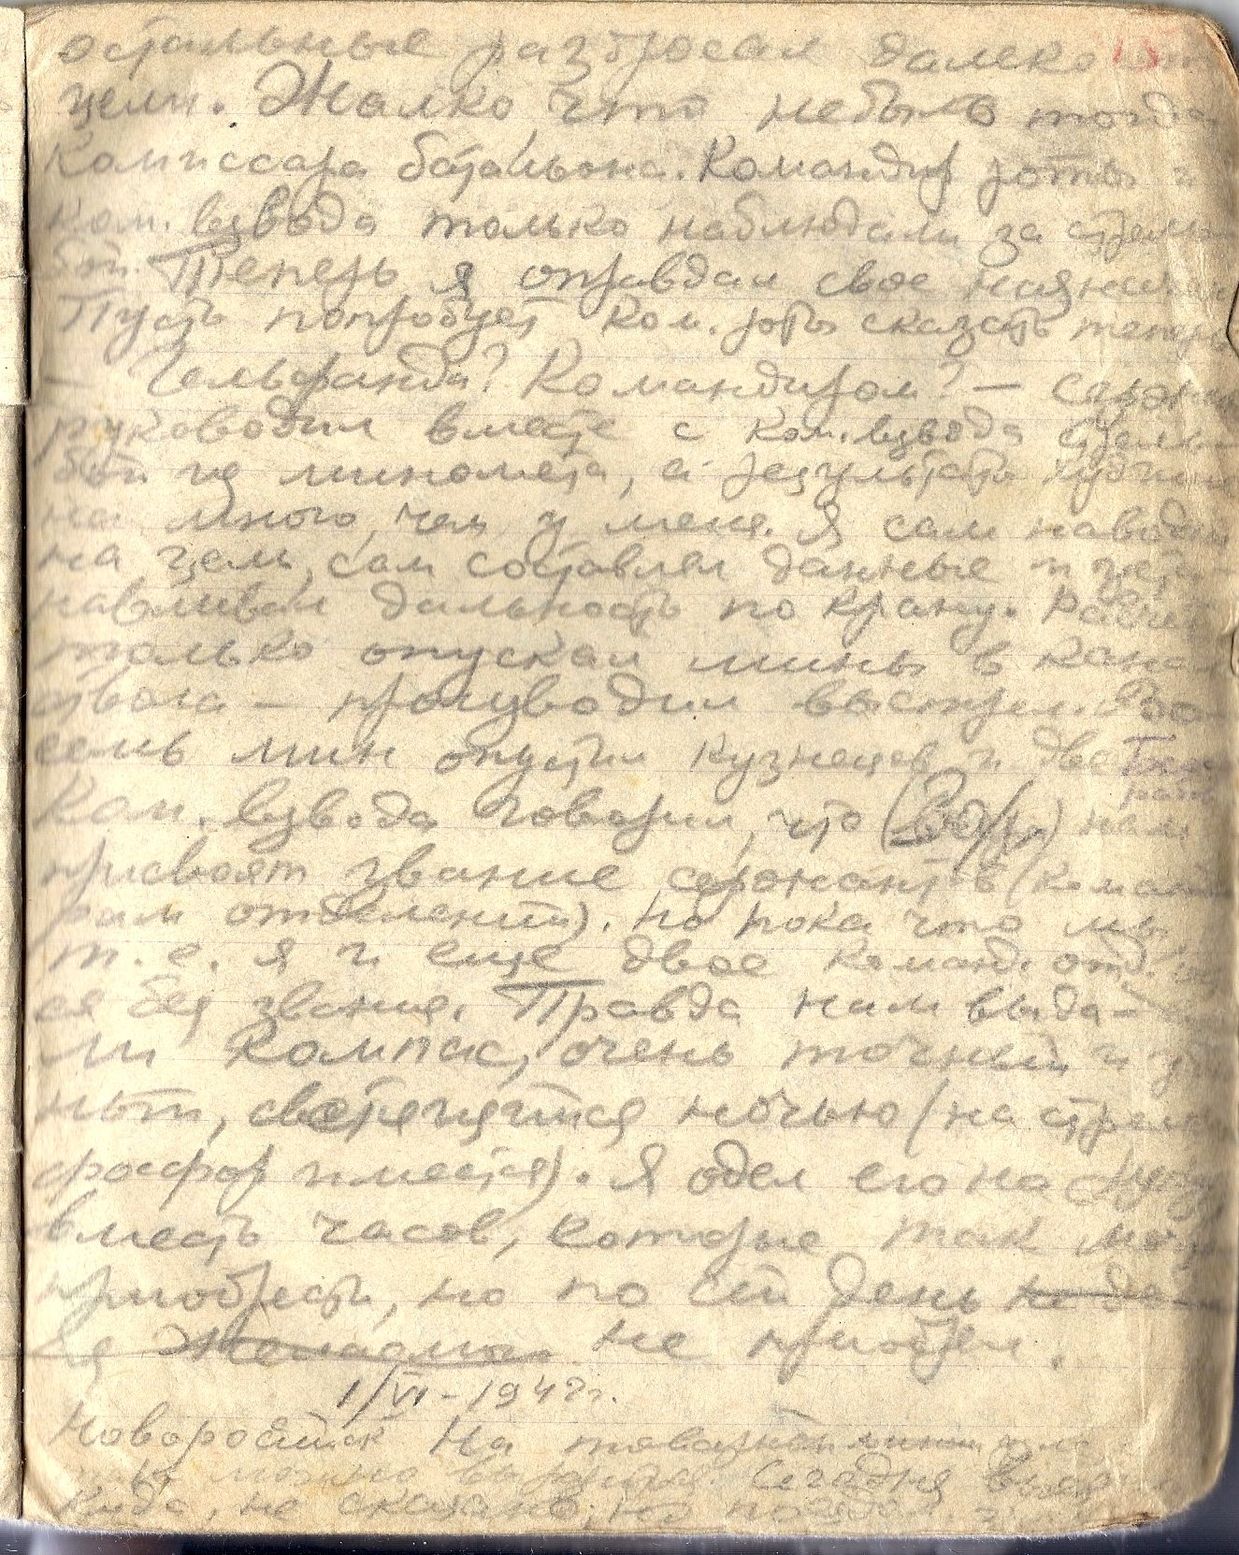 остальные разбросал далеко от
цели. Жалко, что небыло тогда
комиссара батальона. Командир роты и
ком. взвода только наблюдали за стрель
бой. Теперь я оправдал свое
Пусть попробует ком. роты сказать теперь
— Гельфанда? Командиром? —
руководил вместе с ком. взвода стрель-
бой из миномета, а результаты
на много, чем у меня. Я сам наводил
на цель, сам составлял данные и уста-
навливал дальность по крану. Расчет
только опускал мины в канал
ствола — производил выстрел.
семь мин опустил Кузнецов и две
Ком. взвода говорил, что нам
присвоят звание сержантов (команди
рам отделений). Но пока что мы,
т. е. я и еще двое команд. отд.
ся без звания. Правда нам выда-
ли компас, очень точный и
ный, светящийся ночью (на стрелке
фосфор имеется). Я одел его на руку
вместо часов, которые так мог
приобрести, но по сей день не
не приобрел.
1/VI - 1942г.
Новороссийск На товарной
можно Сегодня
Куда, не сказано, но поездом